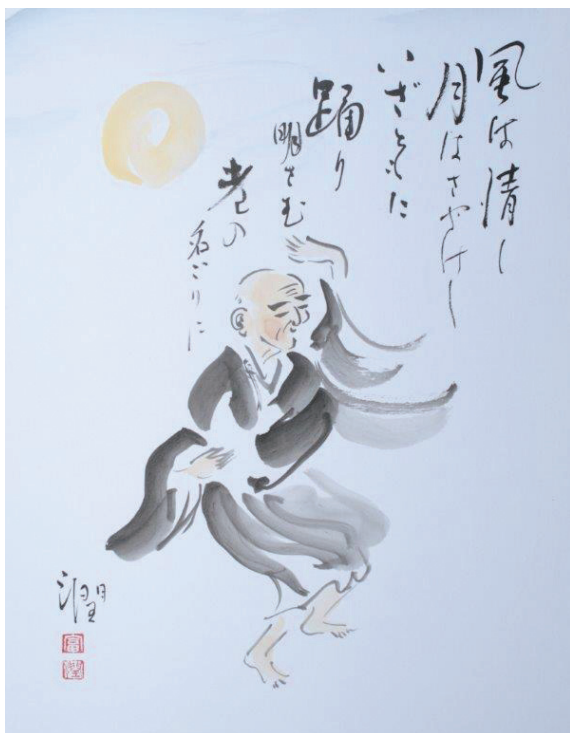 風は清し
月はさやけし
いざともに
踊り
明さむ
老の
名ごりに
潤